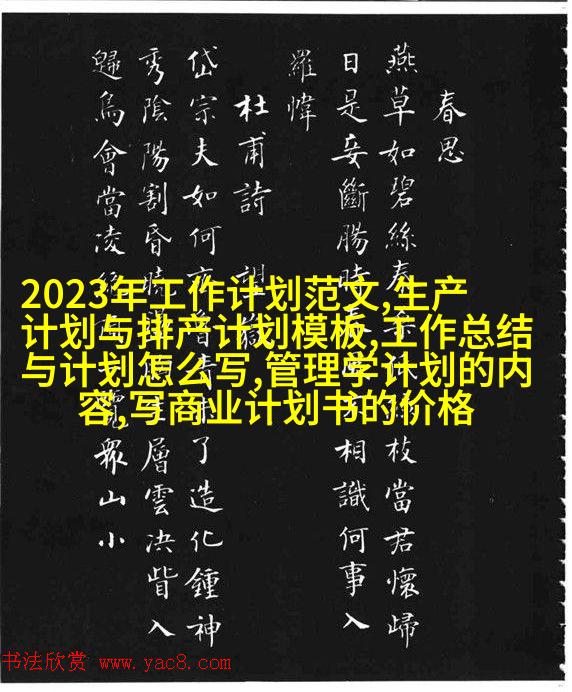 春思
燕草如碧絲枝當君懷歸
日是妾斷腸時相識何事入
羅幃
杜甫詩
岱宗夫如何了造化鍾神
秀陰陽割昏層雲决眥入
歸鳥會當凌衆山小
2023年工作计划范文,生产
计划与排产计划模板,工作总结
与计划怎么写,管理学计划的内
容,写商业计划书的价格
书法欣赏 www.yac8.com